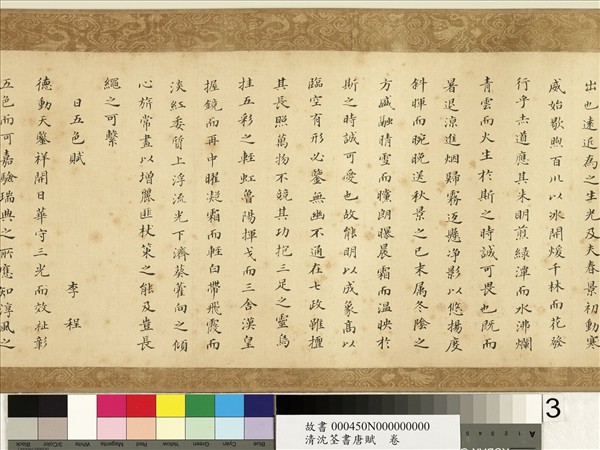 出也遠近為之生光及夫春景初動寒
威始歇煦百川以冰開煖千林而花發
行乎赤道應其朱明煎綠潭而水沸爛
青雲而火生於斯之時誠可畏也既而
暑退涼進烟歸霧迈懸淨影以悠揚度
斜暉而晼晚送秋景之已末属冬陰之
方盛融積雪而曈朗曝晨霜而温映於
斯之時誠可愛也故能明以成象高以
臨空有形必鑒無幽不通在七政雖擅
其長照萬物不競其功抱三足之靈烏
挂五彩之輕虹魯陽揮戈而三舍漢皇
握鏡而再中曜凝霜而輕白帶飛霞而
淡紅委質上浮流光下濟葵藿向之傾
心旂常畫以增麗匪杖策之能及豈長
繩之可繫
日五色賦 李程
德動天鑒祥開日華守三光而效祉彰
五色而可嘉驗瑞典之所應知淳風之
3
故書 000450N000000000
清沈荃書唐賦 卷
Black 3/Color White Magenta Red Yellow Green Cyan Blue